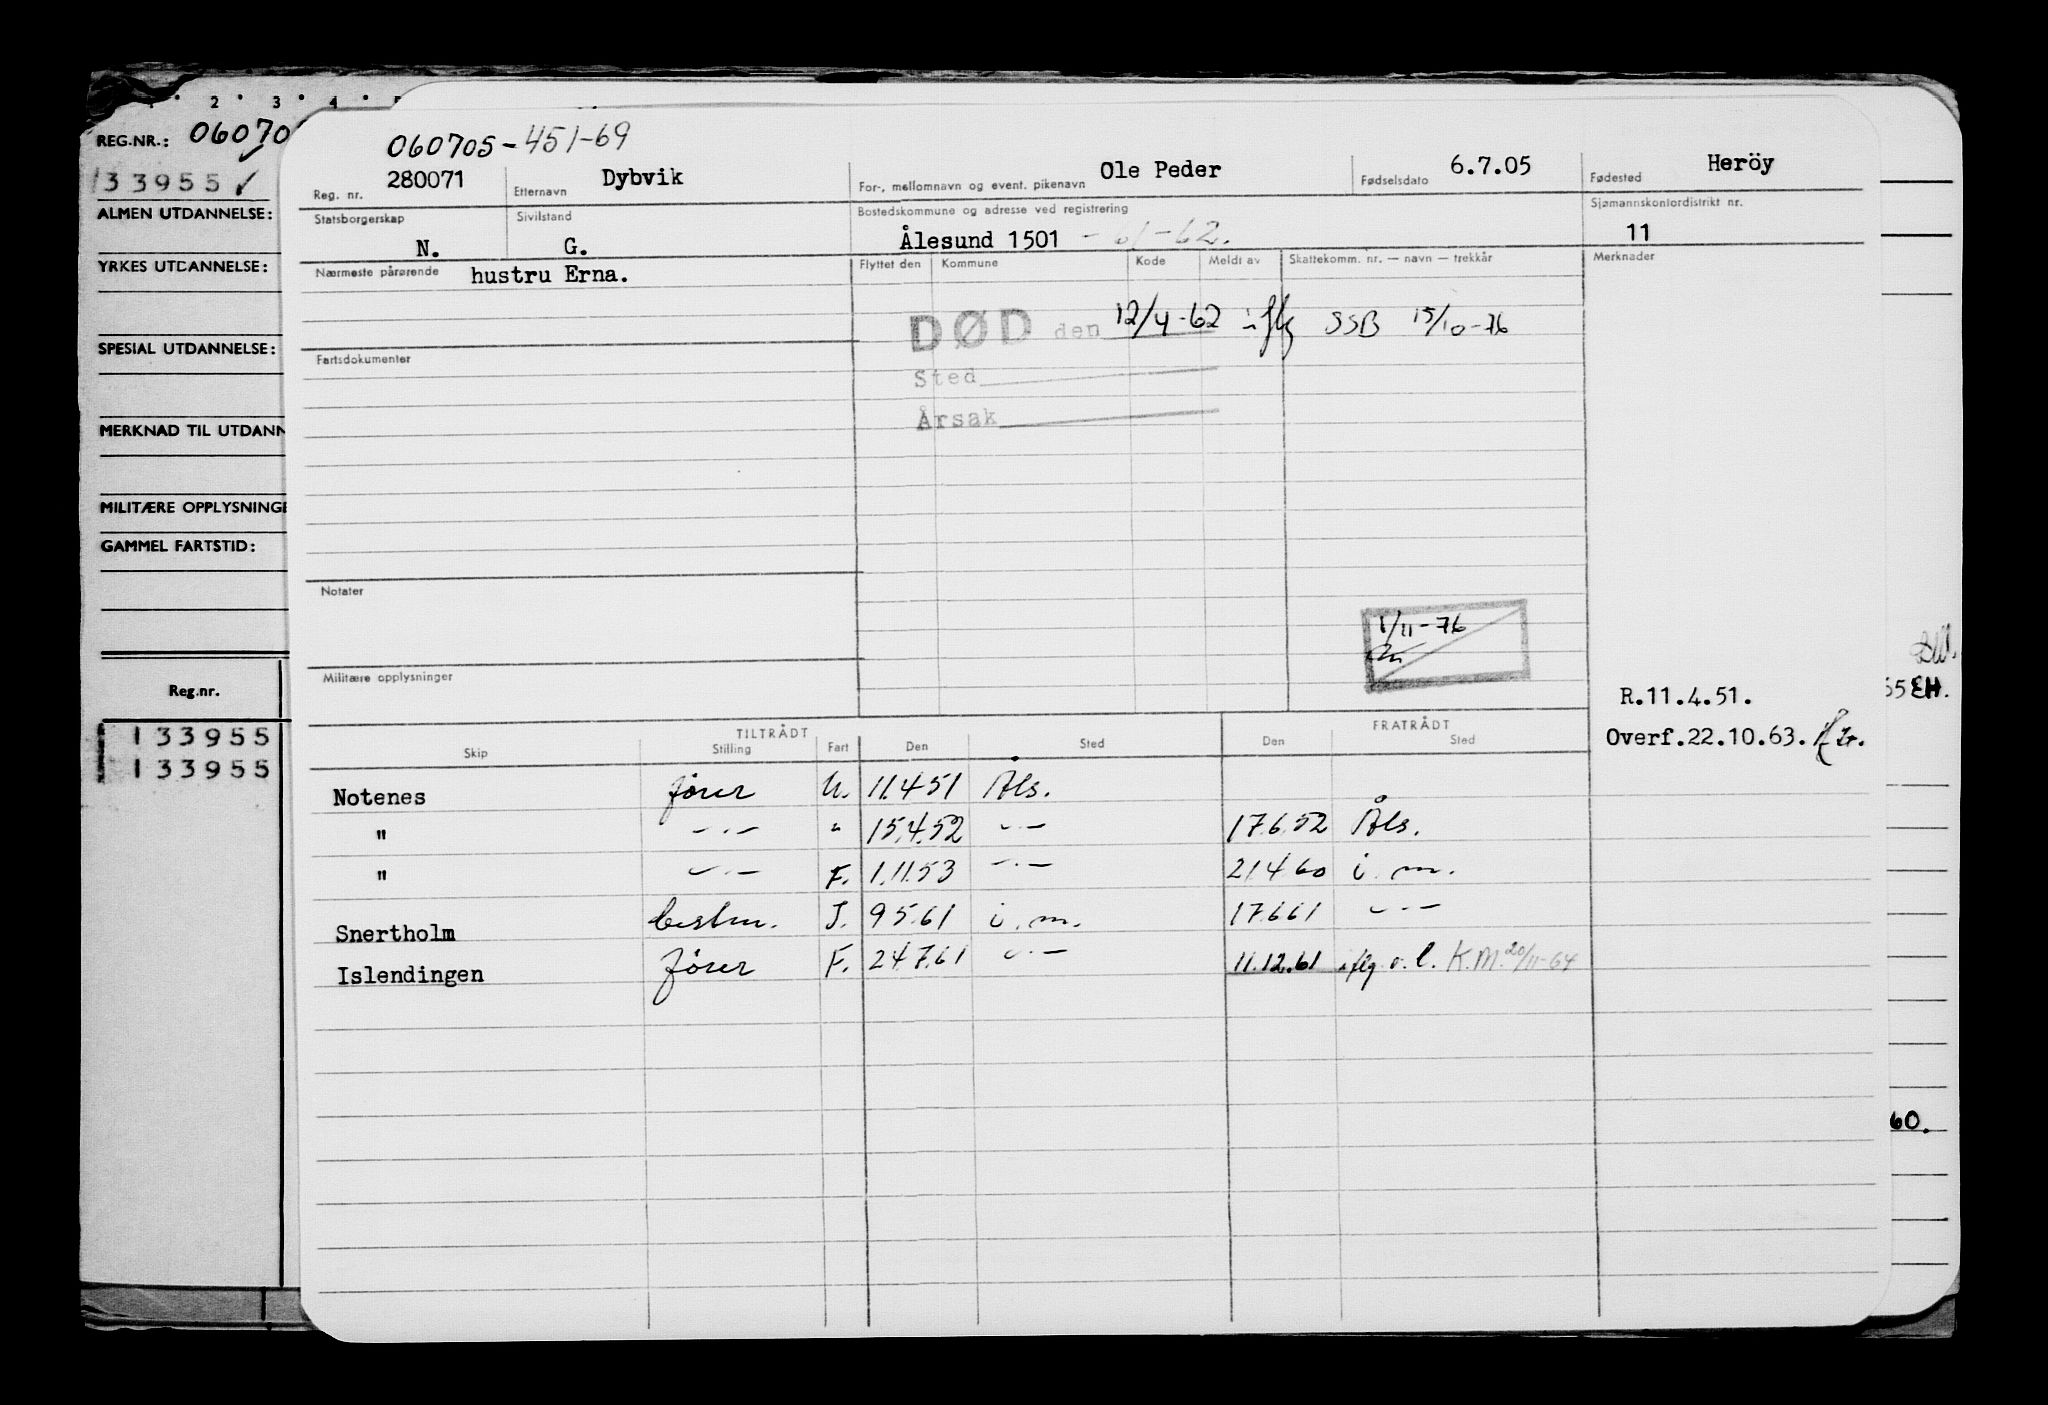 1 2 3 4 5
REG.NR.: 06070
133955 ✓
ALMEN UTDANNELSE:
YRKES UTDANNELSE:
SPESIAL UTDANNELSE:
MERKNAD TIL UTDANN
MILITÆRE OPPLYSNINGE
GAMMEL FARTSTID:
Reg.nr.
133955
133955
060705-451-69
Reg. nr. 280071 Etternavn Dybvik For-, mellomnavn og event. pikenavn Ole Peder Fødselsdato 6.7.05 Fødested Heröy
Statsborgerskap N. Sivilstand G. Bostedskommune og adresse ved registrering Ålesund 1501 - 61-62. Sjømannskontordistrikt nr. 11
Nærmeste pårørende hustru Erna. Flyttet den Kommune Kode Meldt av Skattekomm. nr. — navn — trekkår Merknader
DØD den 12/4-62 iflg SSB 15/10-76
Sted
Årsak
Fartsdokumenter
Notater
1/11-76
Militære opplysninger
R.11.4.51.
Overf.22.10.63.
55 EH.
60.
TILTRÅDT FRATRÅDT
Skip Stilling Fart Den Sted Den Sted
Notenes fører U. 11.4.51 Åls.
" -"- " 15.4.52 -"- 17.6.52 Åls.
" -"- F. 1.11.53 -"- 21.4.60 i.m.
Snertholm bestm. I. 9.5.61 i.m. 17.6.61 -"-
Islendingen fører F. 24.7.61 -"- 11.12.61 iflg. o.l. K.M. 20/11-64